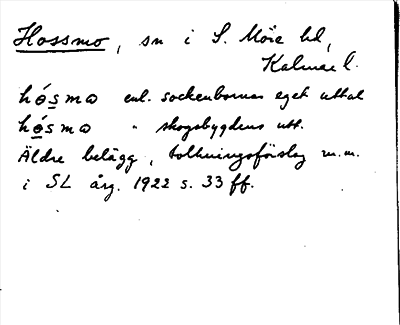 Hossmo, sn i S. Möre hd,
Kalmar l.
hósmo enl. sockenbornas eget uttal
hósmo " skogsbygdens utt.
Äldre belägg, tolkningsförslag m.m.
i SL årg. 1922 s. 33 ff.